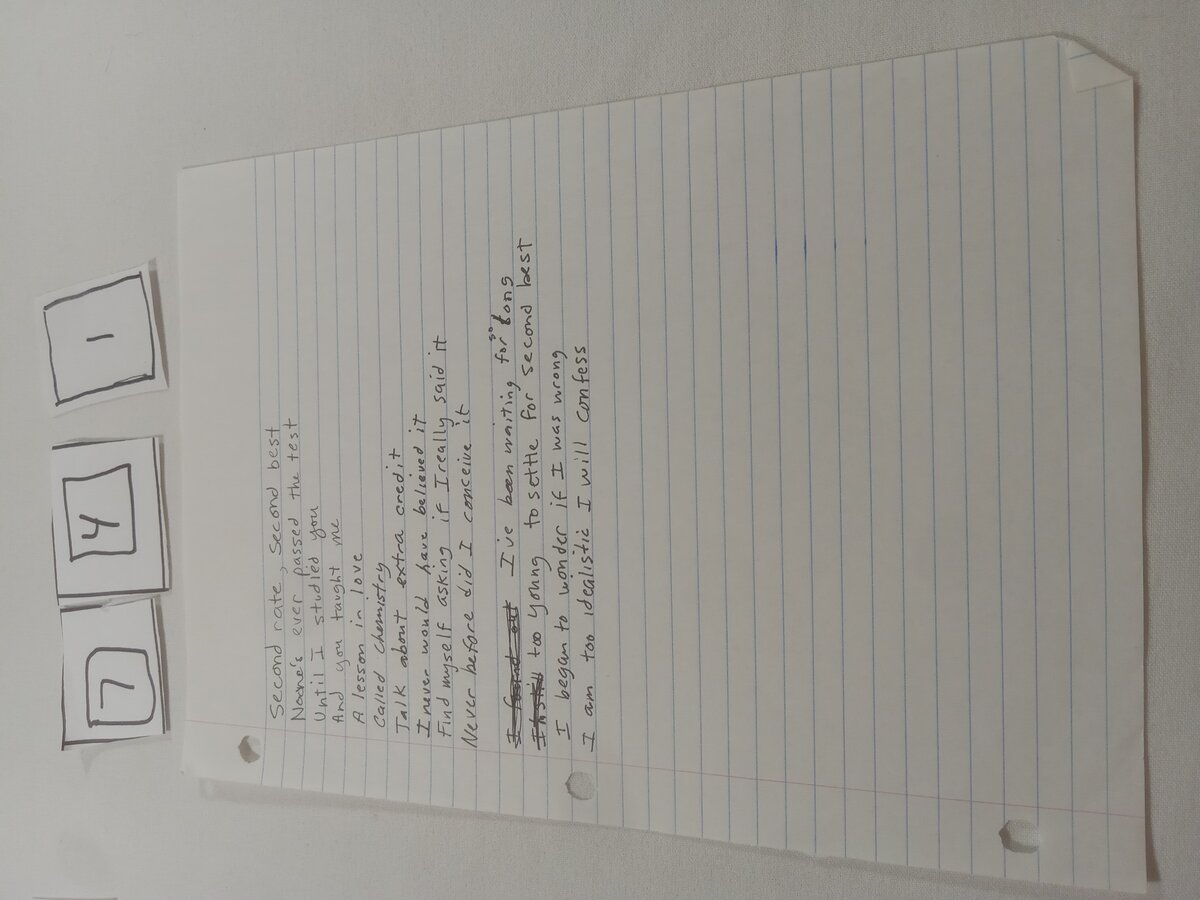 7 4 1
Second rate, second best
Noone's ever passed the test
Until I studied you
And you taught me
A lesson in love
Called chemistry
Talk about extra credit
I never would have believed it
Find myself asking if I really said it
Never before did I conceive it
I found out I've been waiting for so long
I'm still too young to settle for second best
I began to wonder if I was wrong
I am too idealistic I will confess